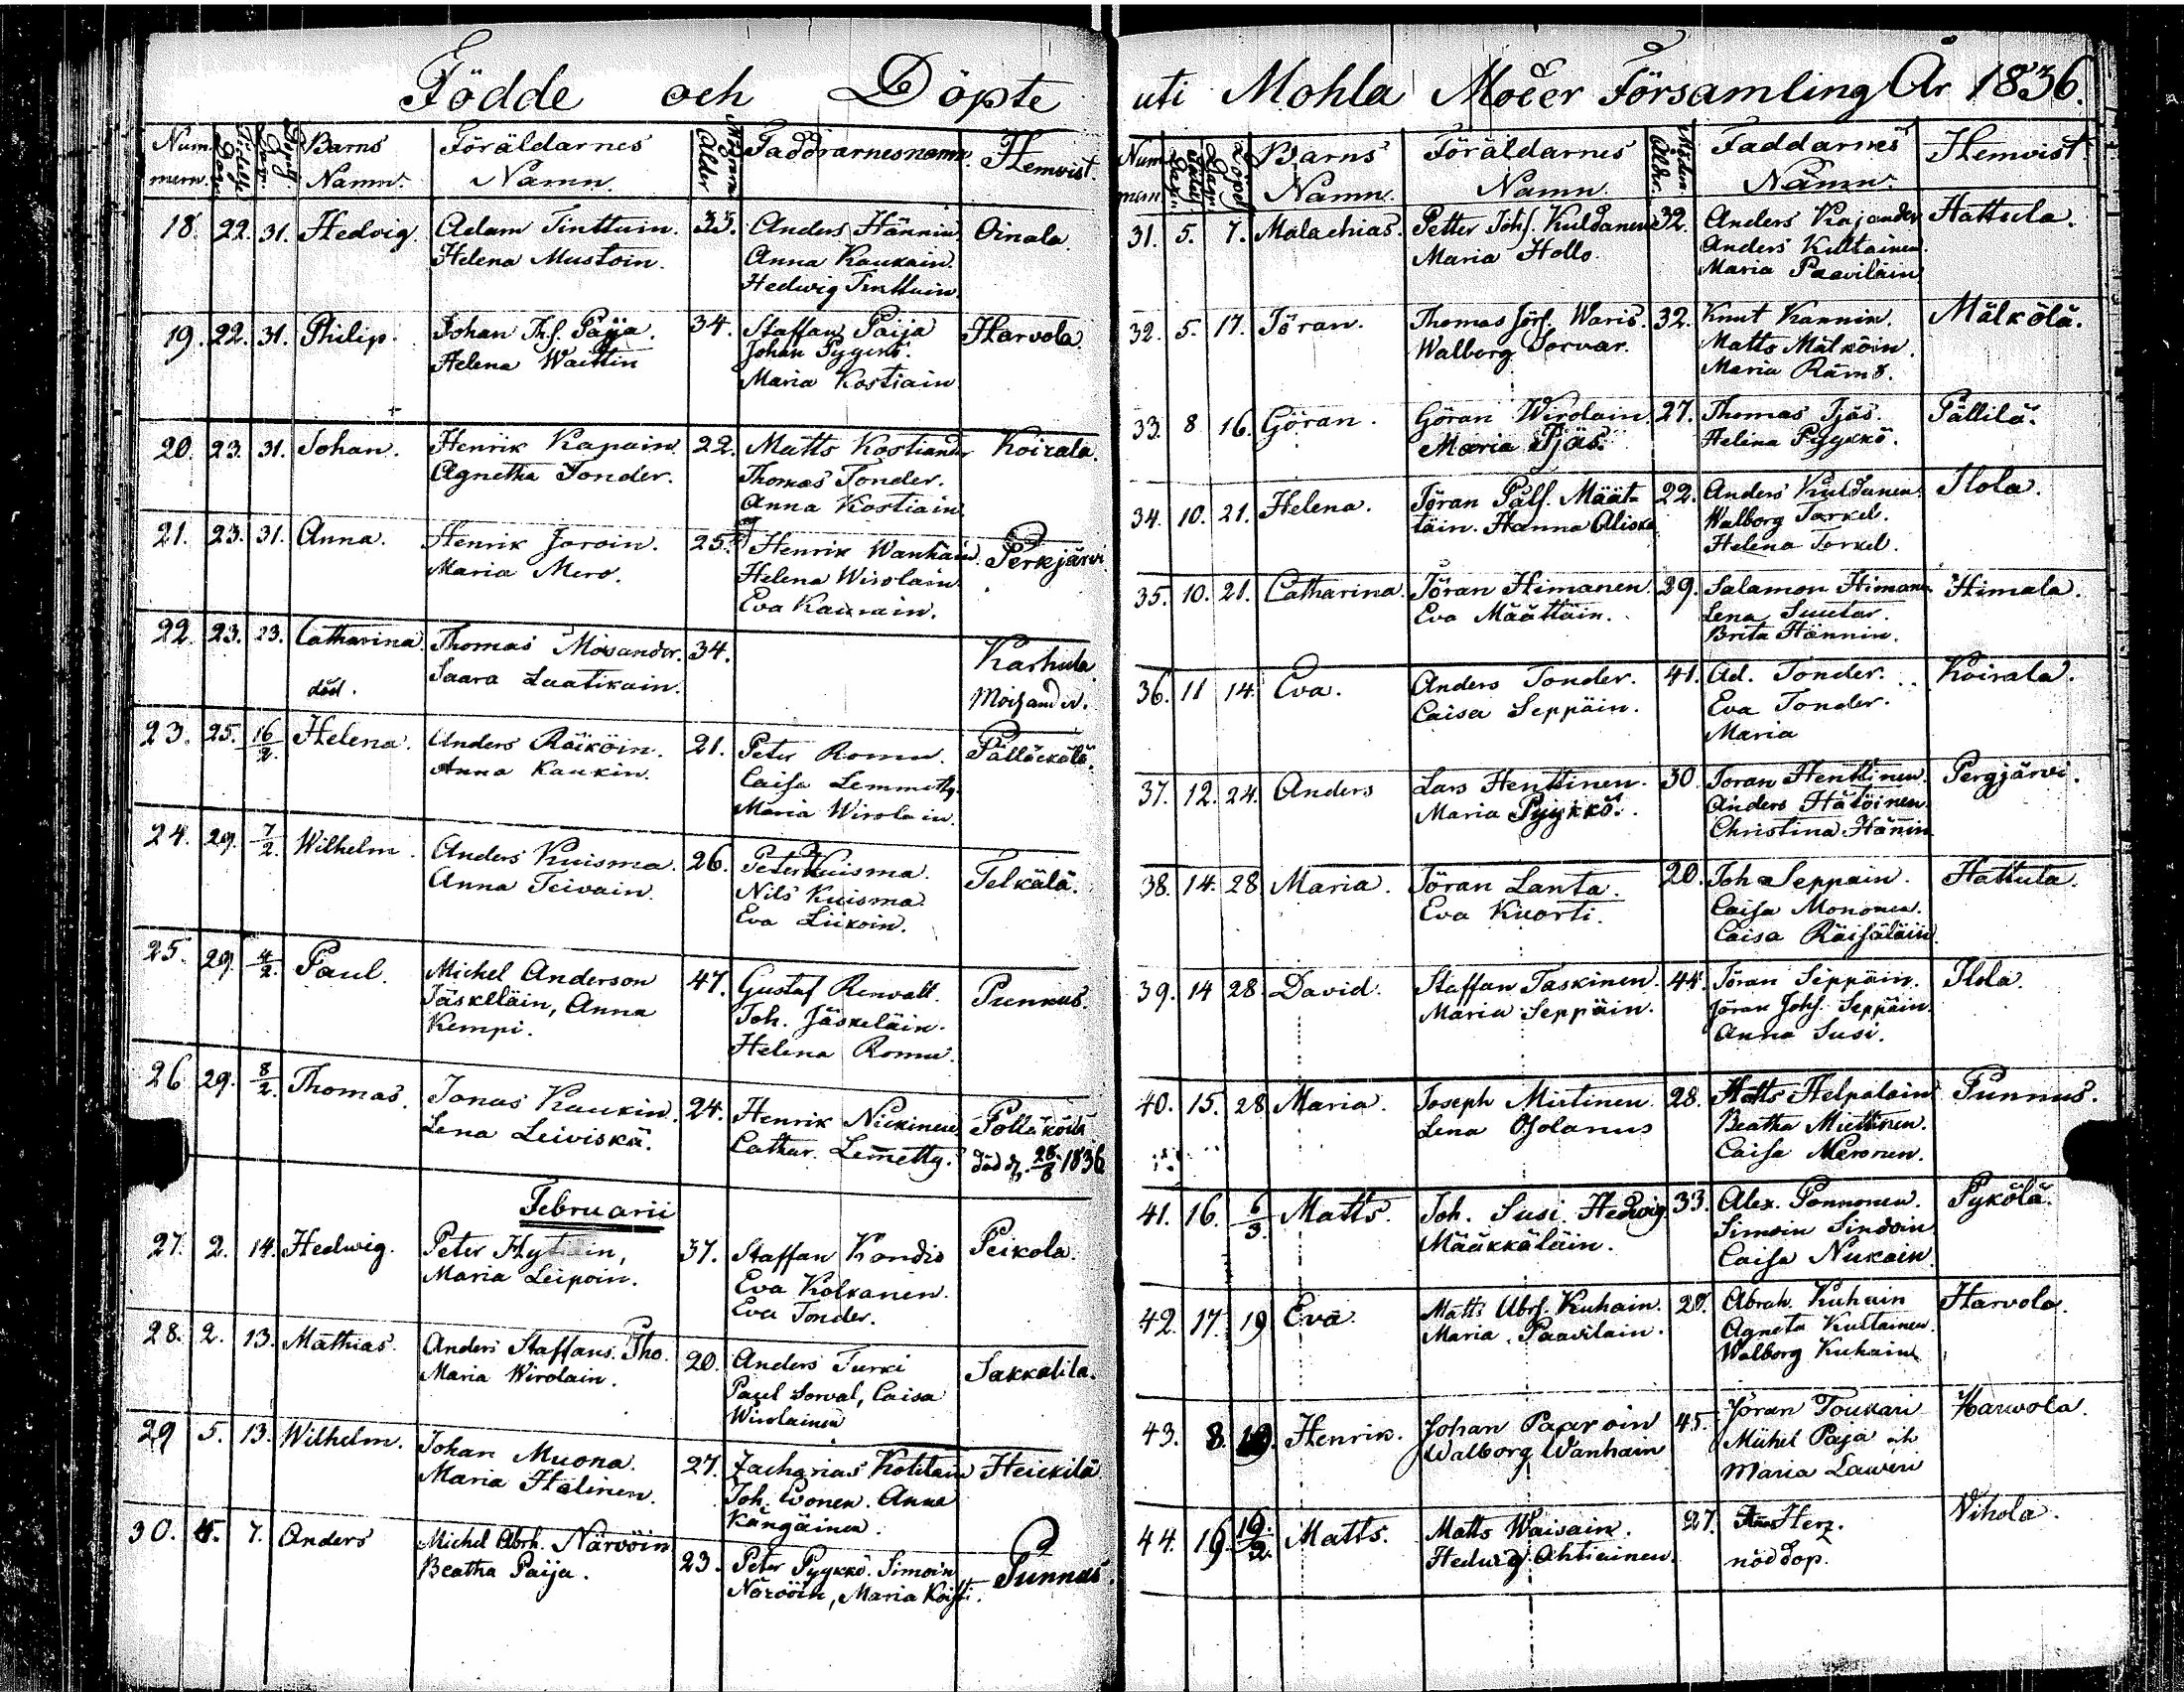 Födde och Döpte
Num mern. Födelse Dagen Döpelse Dagen Barns Namn. Föräldarnes Namn. Modrens Ålder Faddrarnes namn Hemvist.
18. 22. 31. Hedvig. Adam Tinttuin. 33. Anders Hännin. Oinala
Helena Mustoin. Anna Kaukain.
Hedwig Tinttuin.
19. 22. 31. Philip. Johan Thf. Paija. 34. Staffan Paija Harvola
Helena Waittin Johan
Maria Kostiain
20. 23. 31. Johan. Henrik Kapain. 22. Matts Kostiander Koirala.
Agnetha Tonder. Thomas Tonder.
Anna Kostiain
21. 23. 31. Anna. Henrik Joroin. 25. Henrik Wanhain. Perkjärvi
Maria Mero. Helena Wirolain
Eva Kaurain.
22. 23. 23. Catharina. Thomas Mosander. 34. Karhula
död. Saara Laatikain. Moisander.
23. 25. 16/2. Helena. Anders Räiköin. 21. Peter Romu. Pälläckälä.
Anna Kaukin. Caisa Lemmetty
Maria Wirolain.
24. 29. 7/2. Wilhelm. Anders Kuisma. 26. Peter Kuisma. Telkälä.
Anna Teivain. Nils Kuisma
Eva Liikoin.
25. 29. 4/2. Paul. Michel Anderson 47. Gustaf Renvall. Punnus.
Jäskeläin, Anna Joh. Jäskeläin.
Kempi. Helena Romu.
26 29. 8/2. Thomas. Jonas Kaukin. 24. Henrik Nickinen
Lena Leiviskä. Cathar. Lemetty. död d. 28/8 1836
Februarii
27. 2. 14. Hedwig. Peter 37. Staffan Kondio Peikola.
Maria Leipoin. Eva Kolkanen.
Eva Tonder.
28. 2. 13. Mathias. Anders Staffans. Tho. 20. Anders Turki Sakkalila.
Maria Wirolain. Paul Sorval, Caisa
Wirolainen
29 5. 13. Wilhelm. Johan Muona. 27. Zacharias Kotilain Heickilä
Maria Halinen. Joh. Evonen. Anna
Kangäinen.
30. 5. 7. Anders Michel Abrh. Närvöin 23. Peter Pyykkö. Simoin Punnus.
Beatha Paija. Närvöin, Maria Koisti.
uti Mohla Moder Församling År 1836.
Num mern Födelse Dagen Döpel Dagen Barns Namn. Föräldarnes Namn. Modren Ålder. Faddarnes Namn. Hemvist
31. 5. 7. Malachias. Petter Johs. Kuldanen 32. Anders Kajander Hattula.
Maria Hollo. Anders Kultainen.
Maria Paavilain
32. 5. 17. Jöran. Thomas Jörs. Waris. 32. Knut Kannin. Mälkölä.
Walborg Torvar. Matts Mälköin.
Maria Rämö.
33. 8 16. Göran. Göran Wirolain. 27. Thomas Tjäs. Pällilä.
Maria Tjäs. Helena Pyykkö.
34. 10. 21. Helena. Jöran Pålf. Määt- 22. Anders Kuldanen. Ilola.
täin. Hanna Aliska Walborg Tarkel.
Helena Torkel.
35. 10. 21. Catharina. Jöran Himanen. 39. Salamon Himanen Himala.
Eva Määttäin. Lena Suutar.
Brita Hännin.
36. 11 14. Eva. Anders Tonder. 41. Ad. Tonder. Koirala.
Caisa Seppäin. Eva Tonder.
Maria
37. 12. 24. Anders Lars Henttinen. 30. Joran Henttinen. Pergjärvi.
Maria Pyykkö. Anders Hätöinen
Christina Hänin
38. 14. 28 Maria. Jöran Lanta. 20. Joh Seppain. Hattula.
Eva Kuorti. Caisa Mononen.
Caisa Räisäläin
39. 14 28 David. Staffan Taskinen. 44. Jöran Seppäin. Ilola.
Maria Seppäin. Jöran Johs. Seppäin.
Anna Susi.
40. 15. 28 Maria. Joseph Miitinen 28. Matts Helpolain Punnus.
Lena Osolanus Beatha Miettinen.
Caisa Meronen.
41. 16. 6/3. Matts. Joh. Susi. Hedvig 33. Alex. Ponnonen. Pykölä.
Määkkäläin. Simoin Sindoin
Caisa Nukain
42. 17. 19 Eva Matts Abrs. Kuhain. 28. Abrah. Kuhain Harvola.
Maria Paavilain. Agneta Kultainen.
Walborg Kuhain
43. 8. Henrik. Johan Paaroin 45. Jöran Toukari Harvola.
Walborg Wanhain Michel Paja och
Maria Lawin
44. 19. 19/2 Matts. Matts Waivain. 27. Herz. Vihola.
Hedwig Ahtiainen. nöd dop.